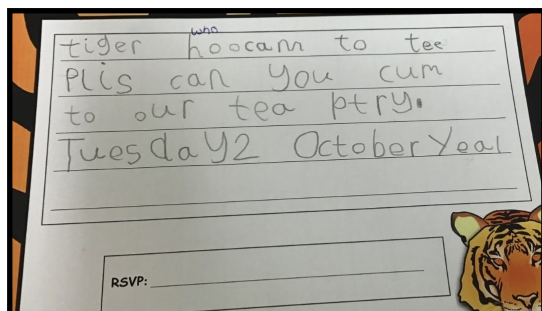 who
tiger hoocam to tee
Plis can you cum
to our tea ptry.
Tuesday2 October Year
RSVP: